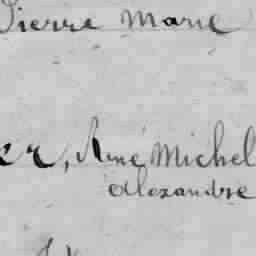 Pierre Marie
er, René Michel
Alexandre